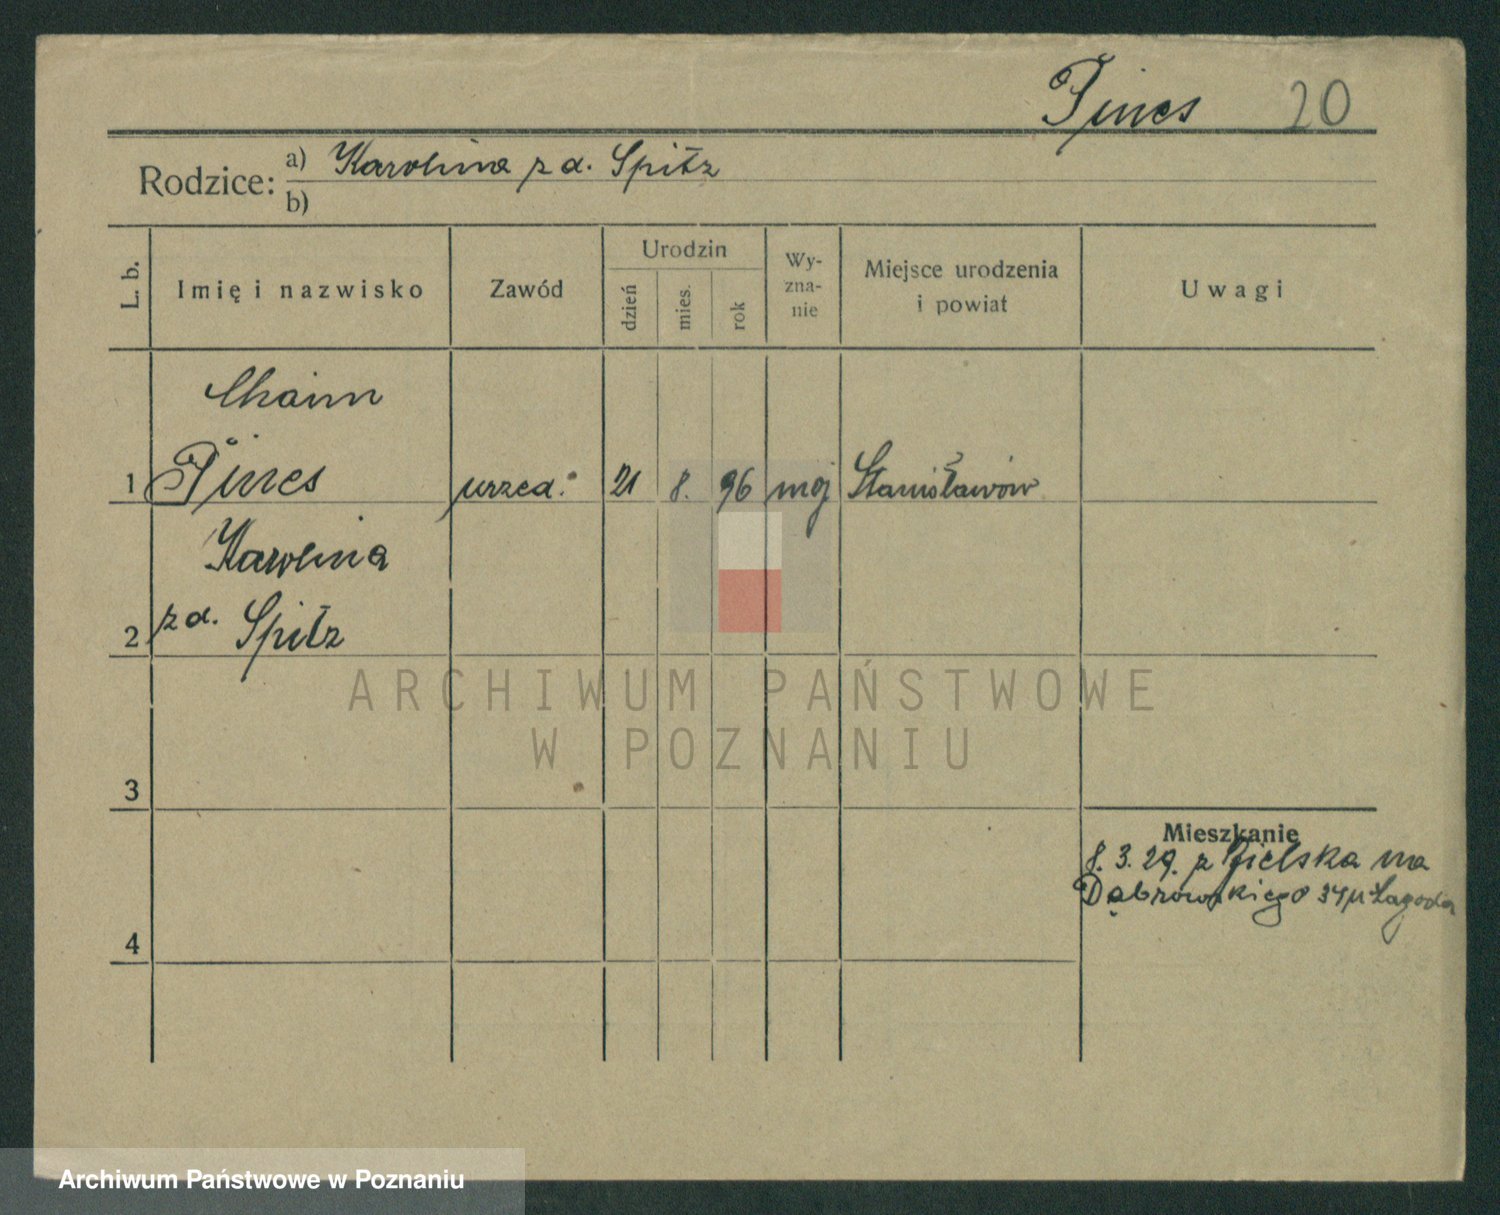 Pines 20
Rodzice: a) Karolina z d. Spitz
b)
L. b. Imię i nazwisko Zawód Urodzin dzień mies. rok Wy-zna-nie Miejsce urodzenia i powiat Uwagi
Chaim
1 Pines urzęd. 21 8. 96 moj Stanisławów
Karolina
2 z d. Spitz
3
Mieszkanie
8. 3. 29. z Bielska na
Dąbrowskiego 34
4
ARCHIWUM PAŃSTWOWE
W POZNANIU
Archiwum Państwowe w Poznaniu